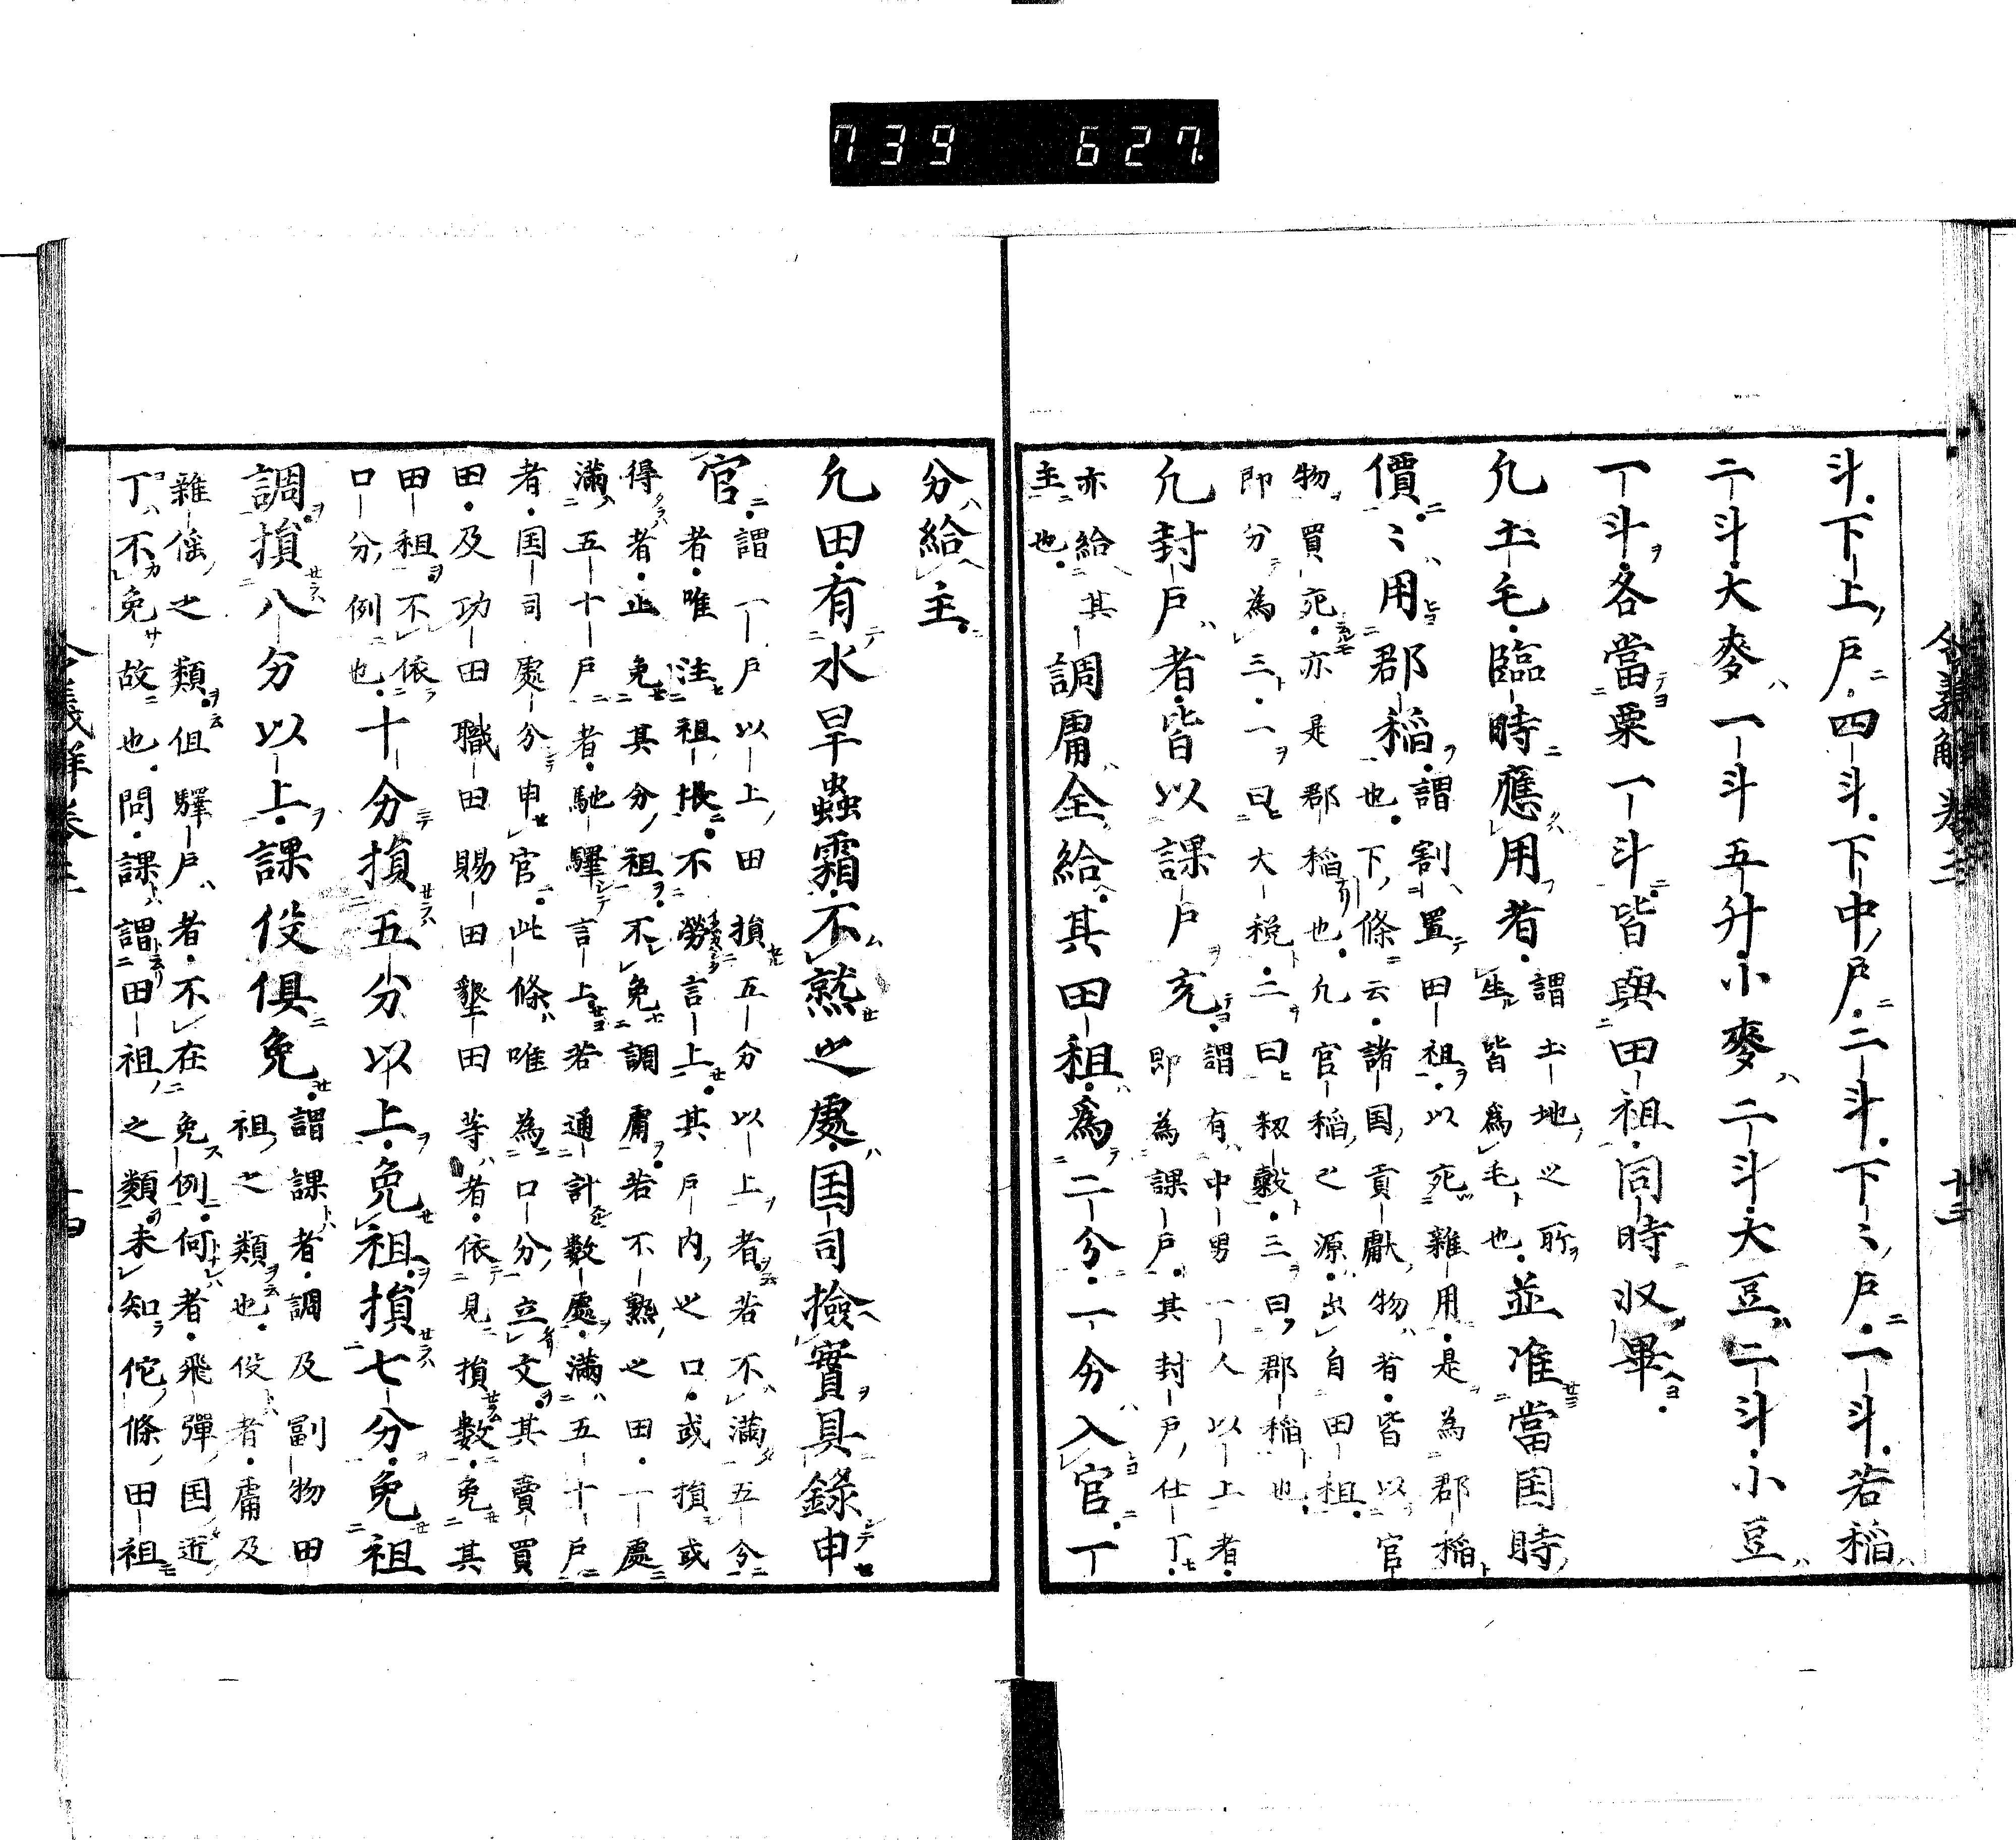 739 627
令義解卷三
十三
斗下上戶四斗下中戶二斗下〻戶一斗若稲
二斗大麥一斗五升小麥二斗大豆二斗小豆
一斗各當粟一斗皆與田祖同時収畢
凢土毛臨時應用者謂土地之所
生皆為毛也並准當国時
價〻用郡稲謂割置田祖以死雜用是為郡稲
也下條云諸国貢獻物者皆以官
物買死亦是郡稲也凢官稲之源出自田祖
即分為三一曰大税二曰籾糓三曰郡稲也
凢封戶者皆以課戶充謂有中男一人以上者
即為課戶其封戶仕丁
亦給其
主也調庸全給其田祖為二分一分入官一
分給主
凢田有水旱蟲霜不熟之處国司撿實具錄申
官謂一戶以上田損五分以上者若不滿五分
者唯注祖帳不勞言上其戶內之口或損或
得者止免其分祖不免調庸若不熟之田一處
滿五十戶者馳驛言上若通計數處滿五十戶
者国司處分申官此條唯為口分立文其賣買
田及功田職田賜田墾田等者依見損數免其
田祖不依
口分例也十分損五分以上免祖損七分免祖
調損八分以上課役俱免謂課者調及副物田
祖之類也役者庸及
雜徭之類但驛戶者不在免例何者飛彈国近
丁不免故也問課謂田祖之類未知佗條田祖